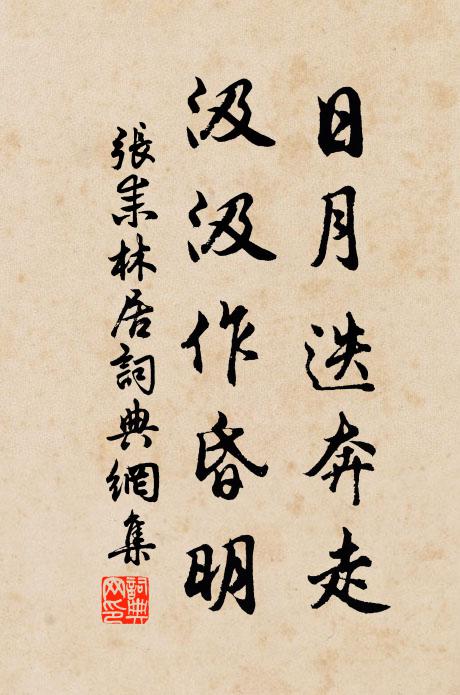 日月迭奔走
汲汲作昏明
張耒林居詞典網集
詞典网印